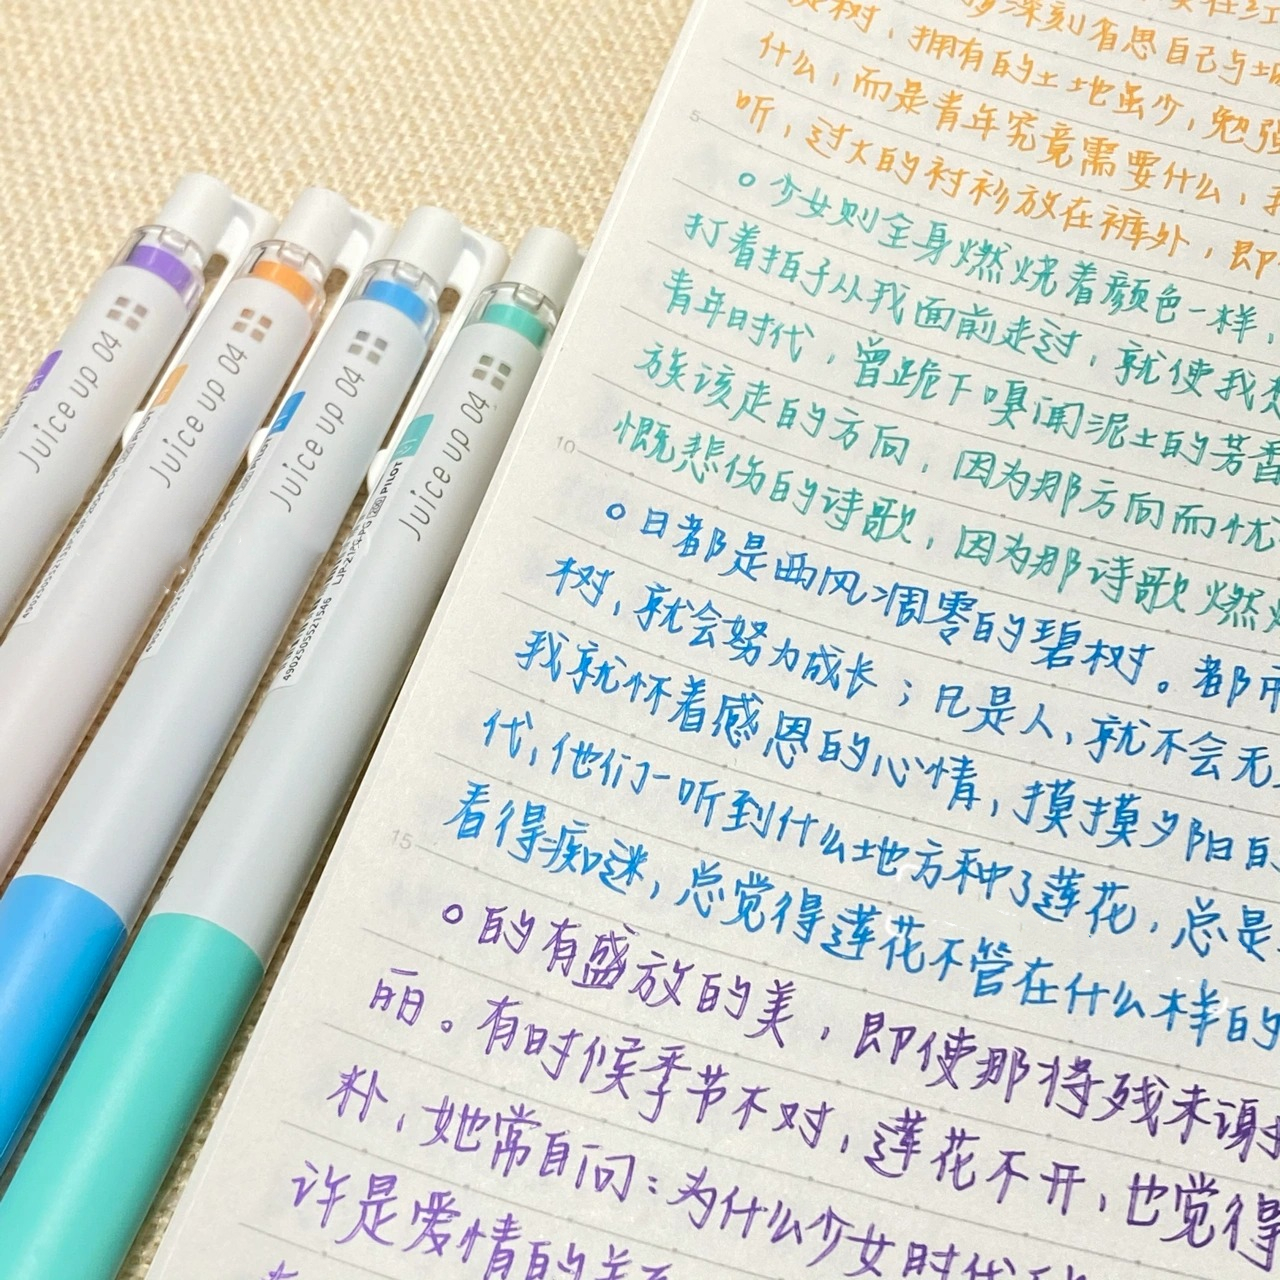 Juice up 04
Juice up 04
Juice up 04
Juice up 04
PILOT
4902505521546
深刻省思自己与
树，拥有的土地虽少，勉强
什么，而是青年究竟需要什么，
听，过大的衬衫放在裤外，即
5
少女则全身燃烧着颜色一样，
打着拍子从我面前走过，就使我想
青年时代，曾跪下嗅闻泥土的芳香
族该走的方向，因为那方向而忧
10
慨悲伤的诗歌，因为那诗歌燃
日都是西风凋零的碧树。都
树，就会努力成长；凡是人，就不会无
我就怀着感恩的心情，摸摸夕阳
代，他们一听到什么地方种了莲花，总是
看得痴迷，总觉得莲花不管在什么样的
15
的有盛放的美，即使那将残未谢
丽。有时候季节不对，莲花不开，也觉得
朴，她常自问：为什么少女时代
许是爱情的